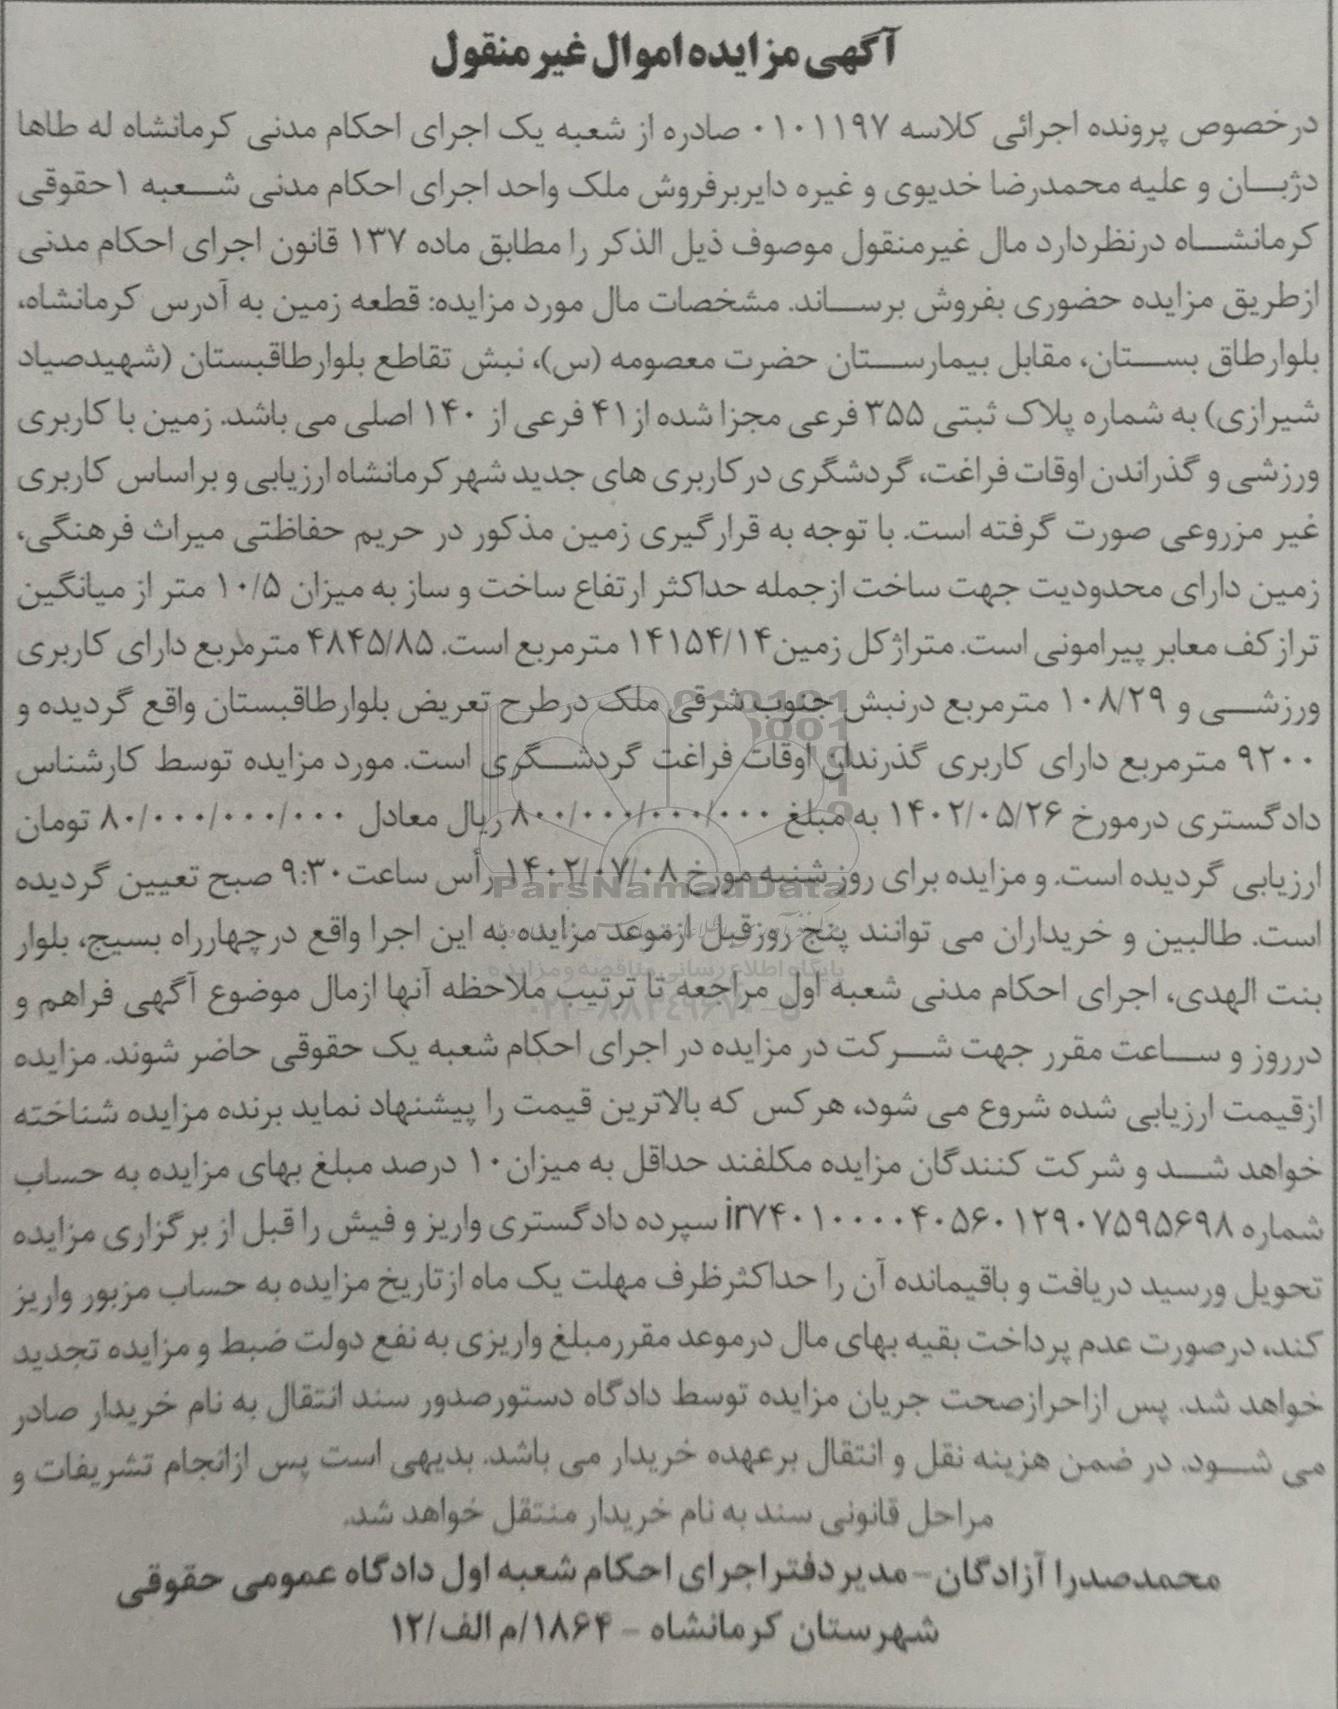 آگهی مزایده اموال غیر منقول
درخصوص پرونده اجرائی کلاسه ۰۱۰۱۱۹۷ صادره از شعبه یک اجرای احکام مدنی کرمانشاه له طاها
دژبان و علیه محمدرضا خدیوی و غیره دایربرفروش ملک واحد اجرای احکام مدنی شعبه ۱ حقوقی
کرمانشاه درنظردارد مال غیرمنقول موصوف ذیل الذکر را مطابق ماده ۱۳۷ قانون اجرای احکام مدنی
ازطریق مزایده حضوری بفروش برساند. مشخصات مال مورد مزایده: قطعه زمین به آدرس کرمانشاه،
بلوارطاق بستان، مقابل بیمارستان حضرت معصومه (س)، نبش تقاطع بلوارطاقبستان (شهیدصیاد
شیرازی) به شماره پلاک ثبتی ۳۵۵ فرعی مجزا شده از ۴۱ فرعی از ۱۴۰ اصلی می باشد. زمین با کاربری
ورزشی و گذراندن اوقات فراغت، گردشگری در کاربری های جدید شهر کرمانشاه ارزیابی و براساس کاربری
غیر مزروعی صورت گرفته است. با توجه به قرارگیری زمین مذکور در حریم حفاظتی میراث فرهنگی،
زمین دارای محدودیت جهت ساخت ازجمله حداکثر ارتفاع ساخت و ساز به میزان ۱۰/۵ متر از میانگین
تراز کف معابر پیرامونی است. متراژ کل زمین ۱۴۱۵۴/۱۴ مترمربع است. ۴۸۴۵/۸۵ مترمربع دارای کاربری
ورزشی و ۱۰۸/۲۹ مترمربع درنبش جنوب شرقی ملک درطرح تعریض بلوارطاقبستان واقع گردیده و
۹۲۰۰ مترمربع دارای کاربری گذرندان اوقات فراغت گردشگری است. مورد مزایده توسط کارشناس
دادگستری درمورخ ۱۴۰۲/۰۵/۲۶ به مبلغ ۸۰۰/۰۰۰/۰۰۰/۰۰۰ ریال معادل ۸۰/۰۰۰/۰۰۰/۰۰۰ تومان
ارزیابی گردیده است. و مزایده برای روز شنبه مورخ ۱۴۰۲/۰۷/۰۸ رأس ساعت ۹:۳۰ صبح تعیین گردیده
ParsNamadData
است. طالبین و خریداران می توانند پنج روزقبل ازموعد مزایده به این اجرا واقع درچهارراه بسیج، بلوار
پایگاه اطلاع رسانی مناقصه و مزایده
بنت الهدی، اجرای احکام مدنی شعبه اول مراجعه تا ترتیب ملاحظه آنها ازمال موضوع آگهی فراهم و
۰۲۱-۸۸۳۴۹۶۷۰-۵
درروز و ساعت مقرر جهت شرکت در مزایده در اجرای احکام شعبه یک حقوقی حاضر شوند. مزایده
ازقیمت ارزیابی شده شروع می شود، هرکس که بالاترین قیمت را پیشنهاد نماید برنده مزایده شناخته
خواهد شد و شرکت کنندگان مزایده مکلفند حداقل به میزان ۱۰ درصد مبلغ بهای مزایده به حساب
شماره ir۷۴۰۱۰۰۰۰۴۰۵۶۰۱۲۹۰۷۵۹۵۶۹۸ سپرده دادگستری واریز و فیش را قبل از برگزاری مزایده
تحویل ورسید دریافت و باقیمانده آن را حداکثرظرف مهلت یک ماه ازتاریخ مزایده به حساب مزبور واریز
کند، درصورت عدم پرداخت بقیه بهای مال درموعد مقررمبلغ واریزی به نفع دولت ضبط و مزایده تجدید
خواهد شد. پس ازاحرازصحت جریان مزایده توسط دادگاه دستورصدور سند انتقال به نام خریدار صادر
می شود. در ضمن هزینه نقل و انتقال برعهده خریدار می باشد. بدیهی است پس ازانجام تشریفات و
مراحل قانونی سند به نام خریدار منتقل خواهد شد.
محمدصدرا آزادگان - مدیر دفتر اجرای احکام شعبه اول دادگاه عمومی حقوقی
شهرستان کرمانشاه - ۱۸۶۴/م الف/۱۲